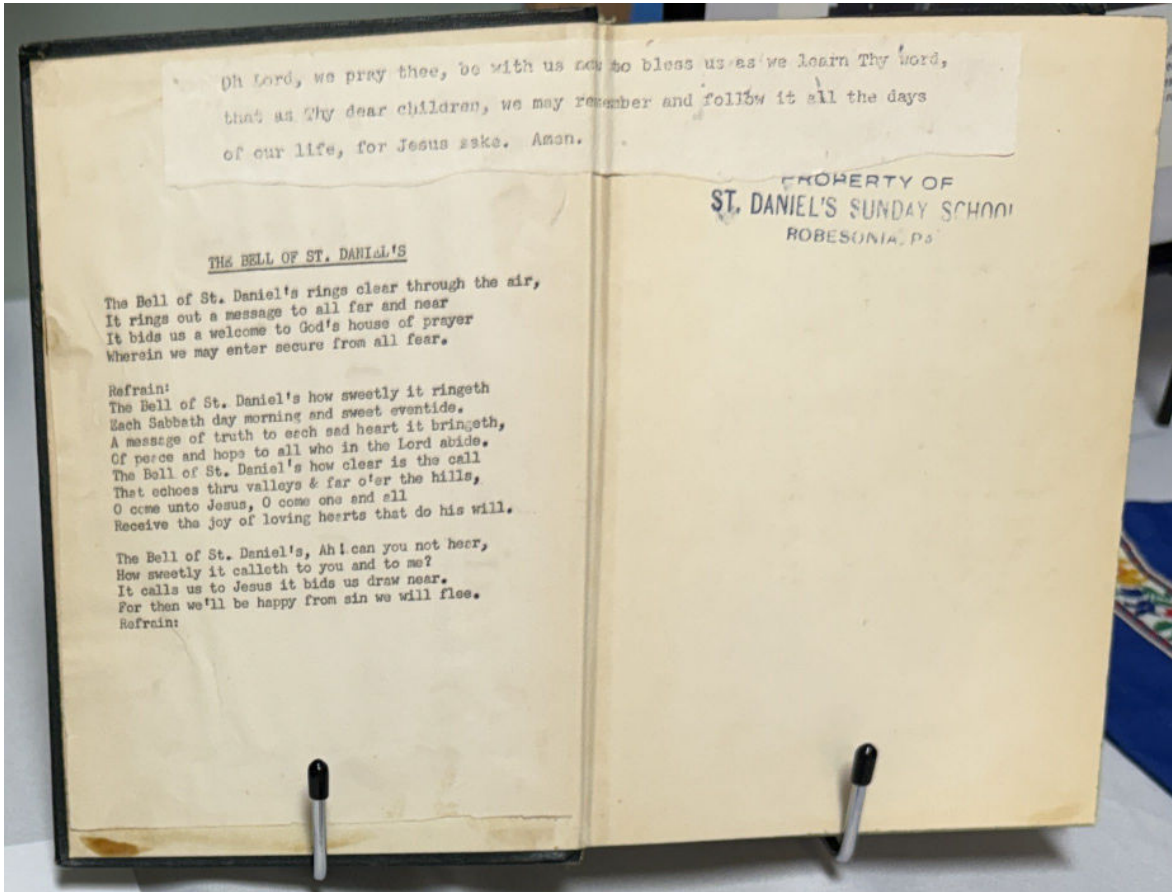 Oh Lord, we pray thee, be with us now to bless us as we learn Thy word,
that as Thy dear children, we may remember and follow it all the days
of our life, for Jesus sake. Amen.
PROPERTY OF
ST. DANIEL'S SUNDAY SCHOOL
ROBESONIA, Pa
THE BELL OF ST. DANIEL'S
The Bell of St. Daniel's rings clear through the air,
It rings out a message to all far and near
It bids us a welcome to God's house of prayer
Wherein we may enter secure from all fear.
Refrain:
The Bell of St. Daniel's how sweetly it ringeth
Each Sabbath day morning and sweet eventide.
A message of truth to each sad heart it bringeth,
Of peace and hope to all who in the Lord abide.
The Bell of St. Daniel's how clear is the call
That echoes thru valleys & far o'er the hills,
O come unto Jesus, O come one and all
Receive the joy of loving hearts that do his will.
The Bell of St. Daniel's, Ah! can you not hear,
How sweetly it calleth to you and to me?
It calls us to Jesus it bids us draw near.
For then we'll be happy from sin we will flee.
Refrain: